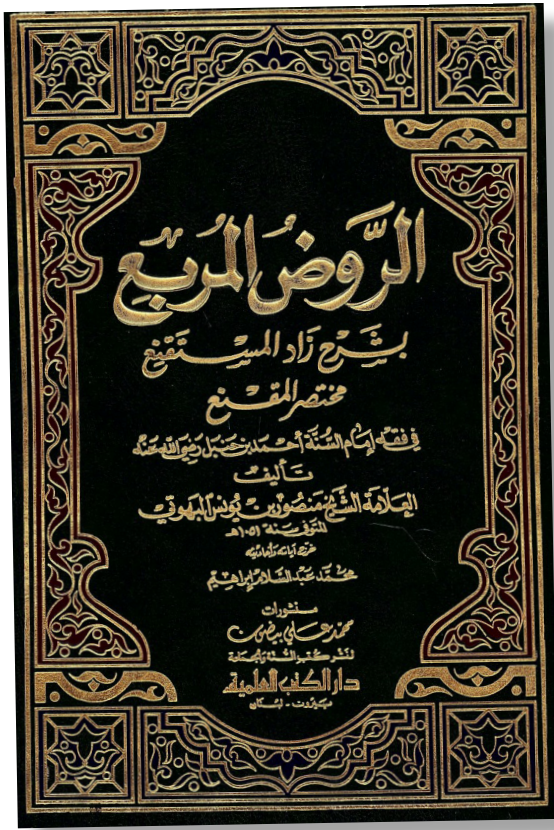 الرَّوضُ المُربِع
بشَرح زَاد المسْتَقنِع
مختصر المقنع
في فقه إمام السُّنّة أحمد بن حنبل رضي الله عنه
تأليف
العلّامة الشّيخ منصور بن يونس البهوتي
المتوفى سنة ١٠٥١هـ
خرج آياته وأحاديثه
محمّد عبد السّلام إبراهيم
منشورات
محمد علي بيضون
لنشر كتب السنة والجماعة
دار الكتب العلمية
بيروت - لبنان